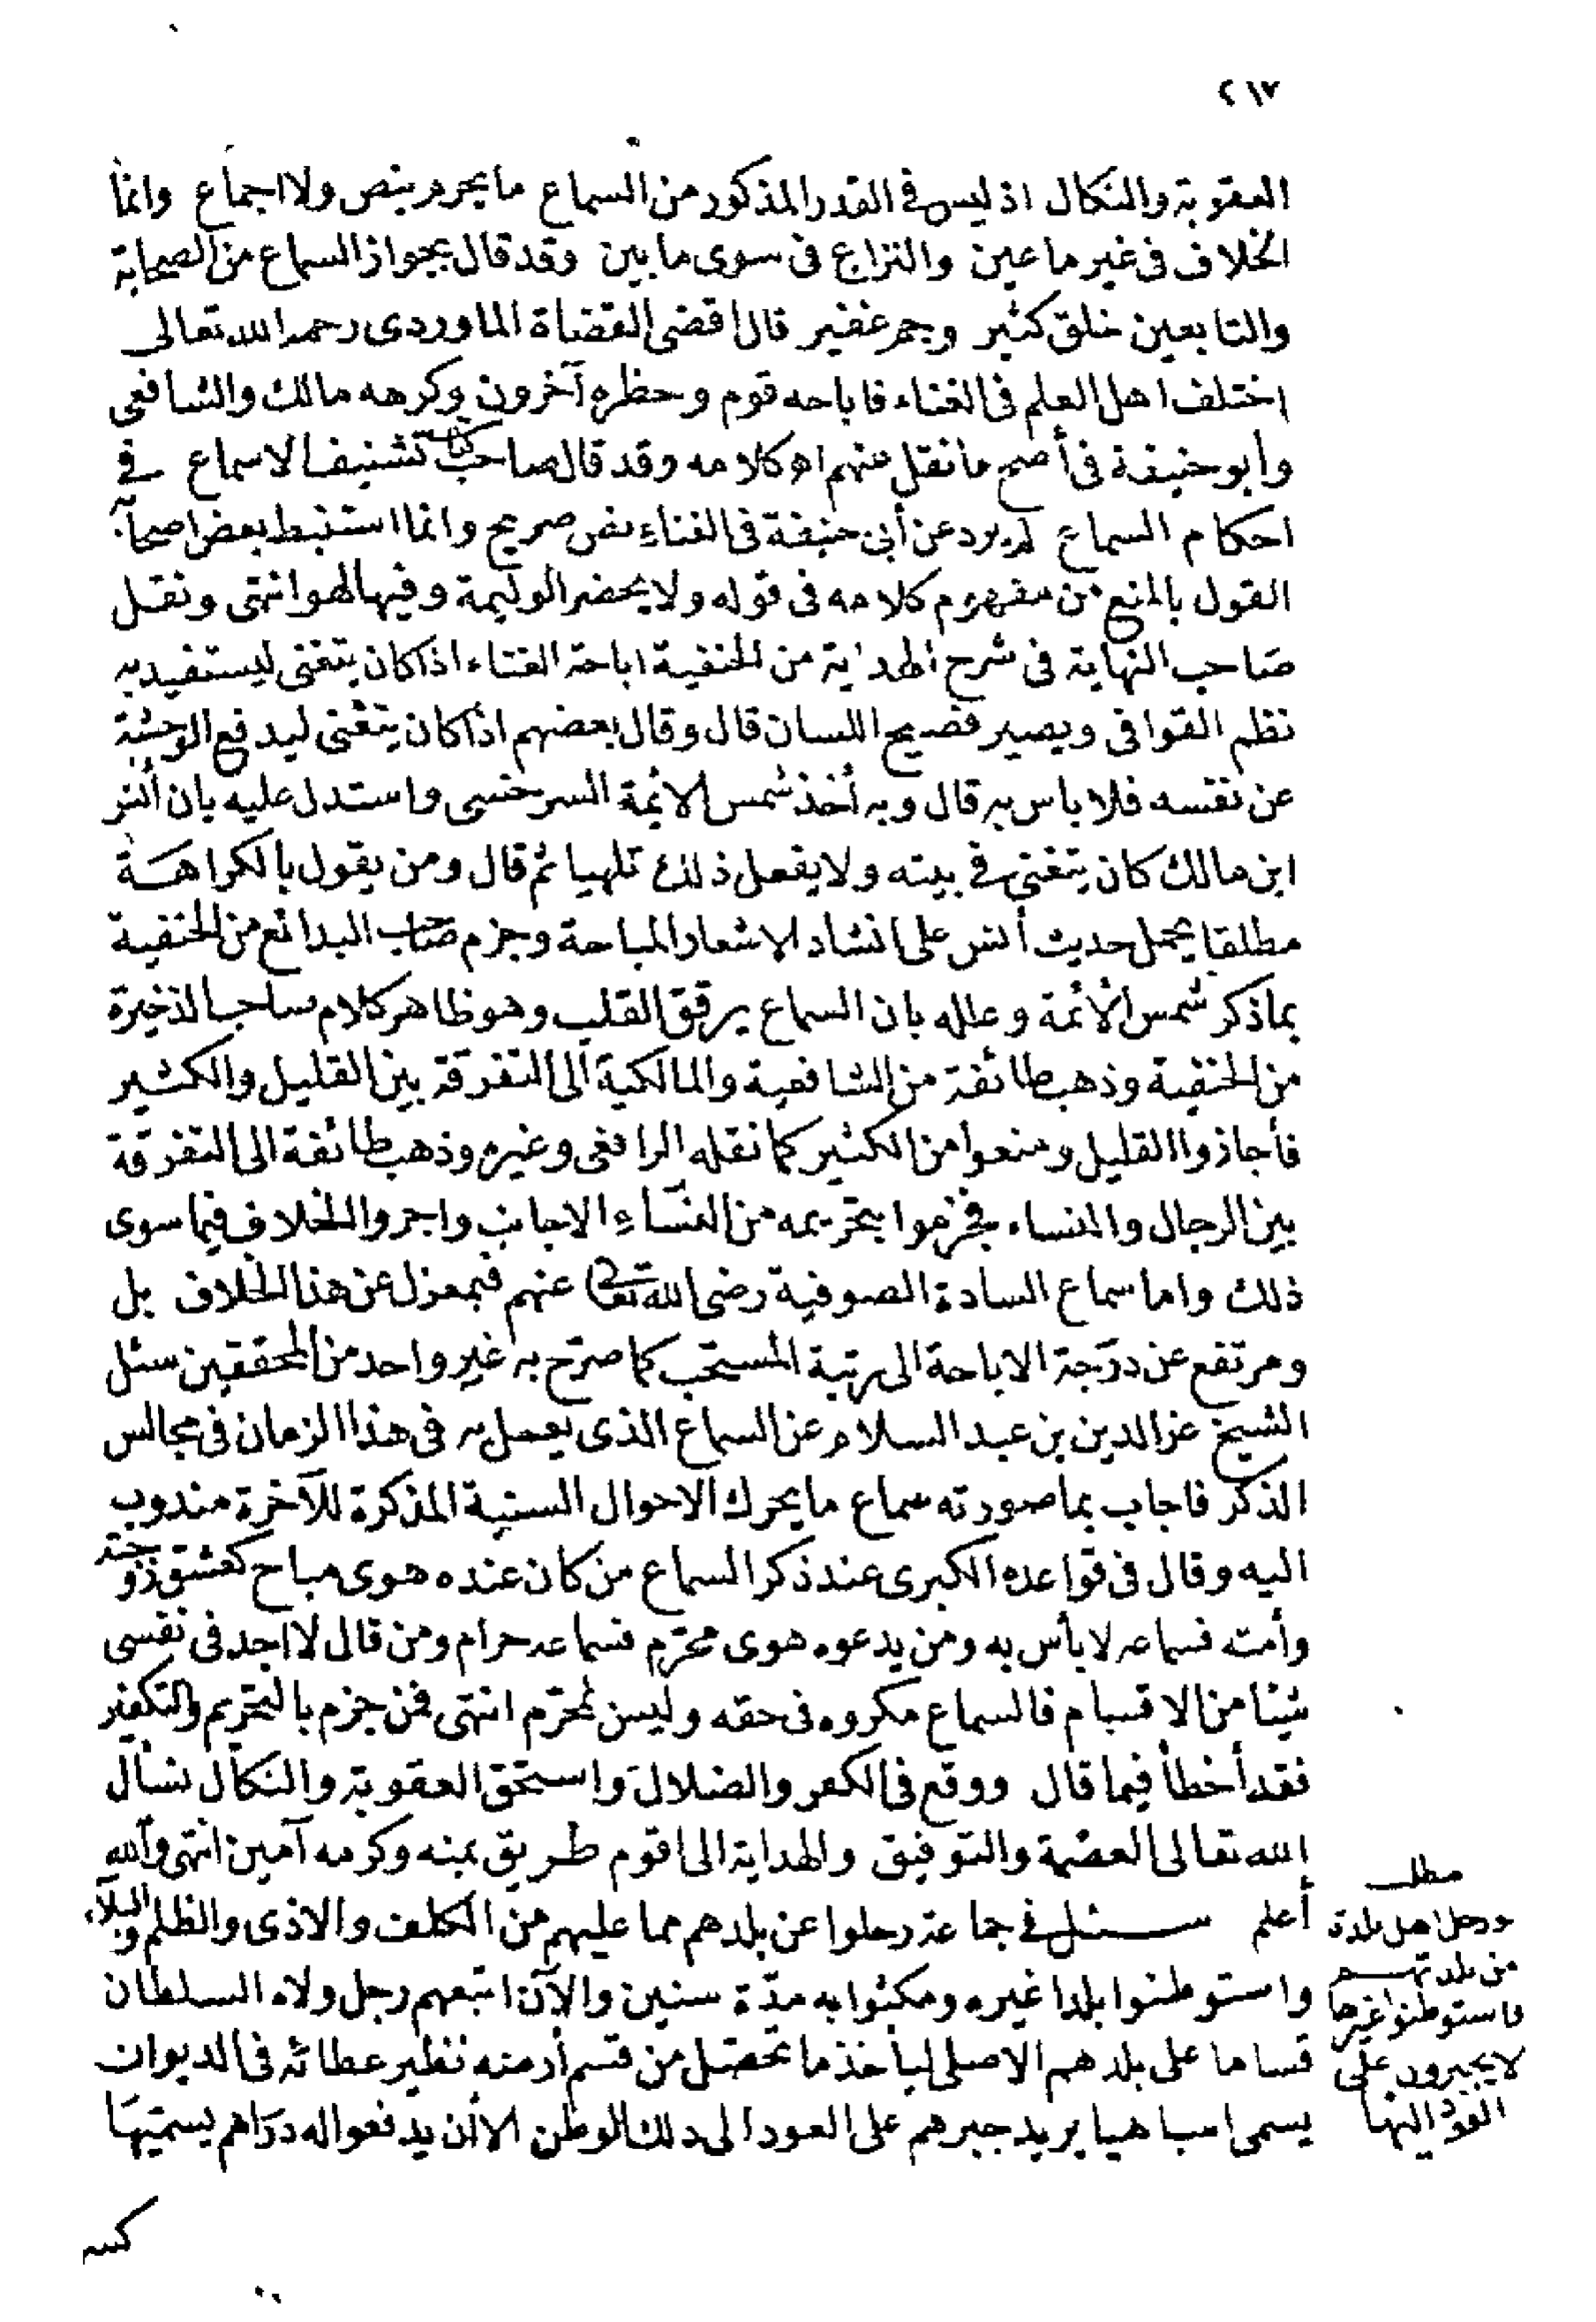 ٢١٧
العقوبة والنكال اذ ليس فى القدر المذكور من السماع ما يحرم بنص ولا اجماع وانما
الخلاف فى غير ما عين والنزاع فى سوى ما بين وقد قال بجواز السماع من الصحابة
والتابعين خلق كثير وجم غفير قال اقضى القضاة الماوردى رحمه الله تعالى
اختلف اهل العلم فى الغناء فاباحه قوم وحظره آخرون وكرهه مالك والشافعى
وابو حنيفة فى أصح ما نقل عنهم اه كلامه وقد قال صاحب كتاب تشنيف الاسماع فى
احكام السماع لم يرد عن أبى حنيفة فى الغناء نص صريح وانما استنبط بعض اصحابه
القول بالمنع من مفهوم كلامه فى قوله ولا يحضر الوليمة وفيها لهو انتهى ونقل
صاحب النهاية فى شرح الهداية من الحنفية اباحة الغناء اذا كان يتغنى ليستفيد به
نظم القوافى ويصير فصيح اللسان قال وقال بعضهم اذا كان يتغنى ليدفع الوحشة
عن نفسه فلا باس به قال وبه أخذ شمس الائمة السرخسى واستدل عليه بان أنس
ابن مالك كان يتغنى فى بيته ولا يفعل ذلك تلهيا ثم قال ومن يقول بالكراهة
مطلقا يحمل حديث أنس على انشاد الاشعار المباحة وجزم صاحب البدائع من الحنفية
بما ذكر شمس الأئمة وعلله بان السماع يرقق القلب وهو ظاهر كلام صاحب الذخيرة
من الحنفية وذهب طائفة من الشافعية والمالكية الى التفرقة بين القليل والكثير
فأجازوا القليل ومنعوا من الكثير كما نقله الرافعى وغيره وذهب طائفة الى التفرقة
بين الرجال والنساء فجزموا بتحريمه من النساء الاجانب واجروا الخلاف فيما سوى
ذلك واما سماع السادة الصوفية رضى الله تعالى عنهم فبمعزل عن هذا الخلاف بل
ومرتفع عن درجة الاباحة الى رتبة المستحب كما صرّح به غير واحد من المحققين سئل
الشيخ عز الدين بن عبد السلام عن السماع الذى يعمل به فى هذا الزمان فى مجالس
الذكر فاجاب بما صورته سماع ما يحرك الاحوال السنية المذكرة للآخرة مندوب
اليه وقال فى قواعده الكبرى عند ذكر السماع من كان عنده هوى مباح كعشق زوجته
وأمته فسماعه لا بأس به ومن يدعوه هوى محرّم فسماعه حرام ومن قال لا اجد فى نفسى
شيئا من الاقسام فالسماع مكروه فى حقه وليس بمحرّم انتهى فمن جزم بالتحريم والتكفير
فقد أخطأ فيما قال ووقع فى الكفر والضلال واستحق العقوبة والنكال نسأل
الله تعالى العصمة والتوفيق والهداية الى اقوم طريق بمنه وكرمه آمين انتهى والله
أعلم سئل فى جماعة رحلوا عن بلدهم مما عليهم من الكلف والاذى والظلم والبلاء
واستوطنوا بلدا غيره ومكثوا به مدّة سنين والآن اتبعهم رجل ولاه السلطان
قساما على بلدهم الاصلى ليأخذ ما تحصّل من قسم أرضه نظير عطائه فى الديوان
يسمى اسباهيا يريد جبرهم على العود الى ذلك الوطن الا أن يدفعوا له دراهم يسميها
مطلب
رحل اهل بلدة
من بلدتهم
فاستوطنوا غيرها
لا يجبرون على
العود اليها
كسر